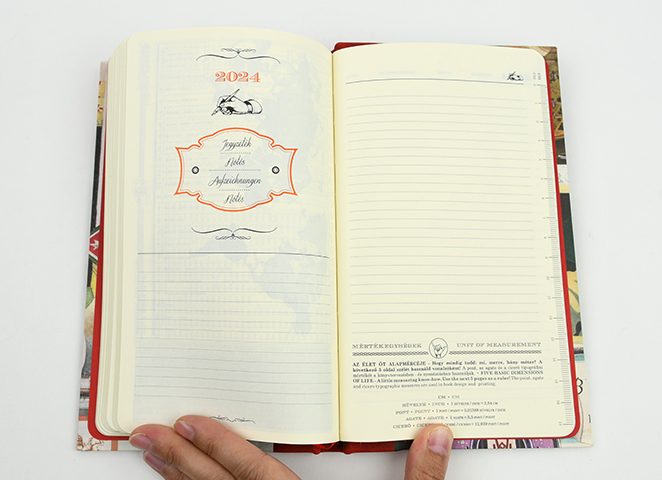 2024
Jegyzetek
Notes
Aufzeichnungen
Notes
MÉRTÉKEGYSÉGEK UNIT OF MEASUREMENT
AZ ÉLET ÖT ALAPMÉRCÉJE - Hogy mindig tudd: mi, merre, hány méter! A
következő 5 oldal szélét használd vonalzóként! A pont, az agate és a ciceró tipográfiai
mértékét a könyvtervezésben - és nyomtatásban használjuk. • FIVE BASIC DIMENSIONS
OF LIFE - A little measuring know-how. Use the next 5 pages as a ruler! The point, agate
and cicero typographic measures are used in book design and printing.
CM • CM
HÜVELYK • INCH
PONT • POINT
AGATE • AGATE
CICERÓ